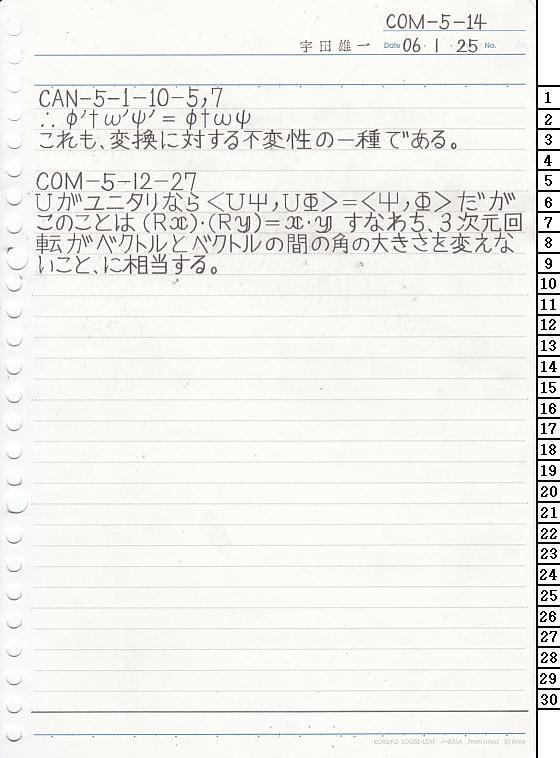 COM-5-14
宇田雄一 Date 06・1・25 No.
CAN-5-1-10-5,7
∴ φ'†ω'ψ' = φ†ωψ
これも、変換に対する不変性の一種である。
COM-5-12-27
UがユニタリならくUΨ,UΦ>=<Ψ,Φ>だが
このことは (Rx)・(Ry)=x・y すなわち、3次元回
転がベクトルとベクトルの間の角の大きさを変えな
いこと、に相当する。
1
2
3
4
5
6
7
8
9
10
11
12
13
14
15
16
17
18
19
20
21
22
23
24
25
26
27
28
29
30
KOKUYO LOOSE-LEAF ノ-836A 7mm ruled 31 lines